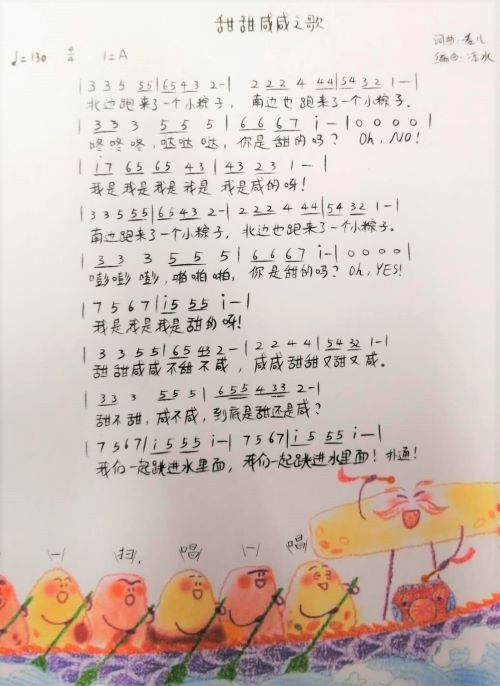 甜甜咸咸之歌
♩=130 4/4 1=A
词曲:老儿
编曲:活水
| 3 3 5 55 | 6543 2-| 2 22 4 44 | 54 32 1-|
北边跑来了一个小粽子, 南边也跑来了一个小粽子.
| 33 3 55 5 | 66 67 i-| 0 0 0 0 |
咚咚咚,哒哒哒,你是甜的吗? Oh, NO!
| i7 65 65 43 | 43 23 1-|
我是我是我是我是 我是咸的呀!
| 3 3 5 55 | 65 43 2-| 2 22 4 44 | 54 32 1-|
南边跑来了一个小粽子, 北边也跑来了一个小粽子.
| 33 3 55 5 | 66 67 i-| 0 0 0 0 |
嘭嘭嘭,啪啪啪,你是甜的吗? Oh, YES!
| 7 5 6 7 | i5 55 i-|
我是我是我是甜的呀!
| 3 3 5 5 | 65 43 2-| 2 2 4 4 | 54 32 1-|
甜甜咸咸不甜不咸, 咸咸甜甜又甜又咸。
| 33 3 55 5 | 655 433 2-|
甜不甜,咸不咸,到底是甜还是咸?
| 7 5 6 7 | i 5 55 i-| 7 5 6 7 | i 5 55 i-|
我们一起跳进水里面,我们一起跳进水里面! 扑通!
一 扫. 唱 一 唱